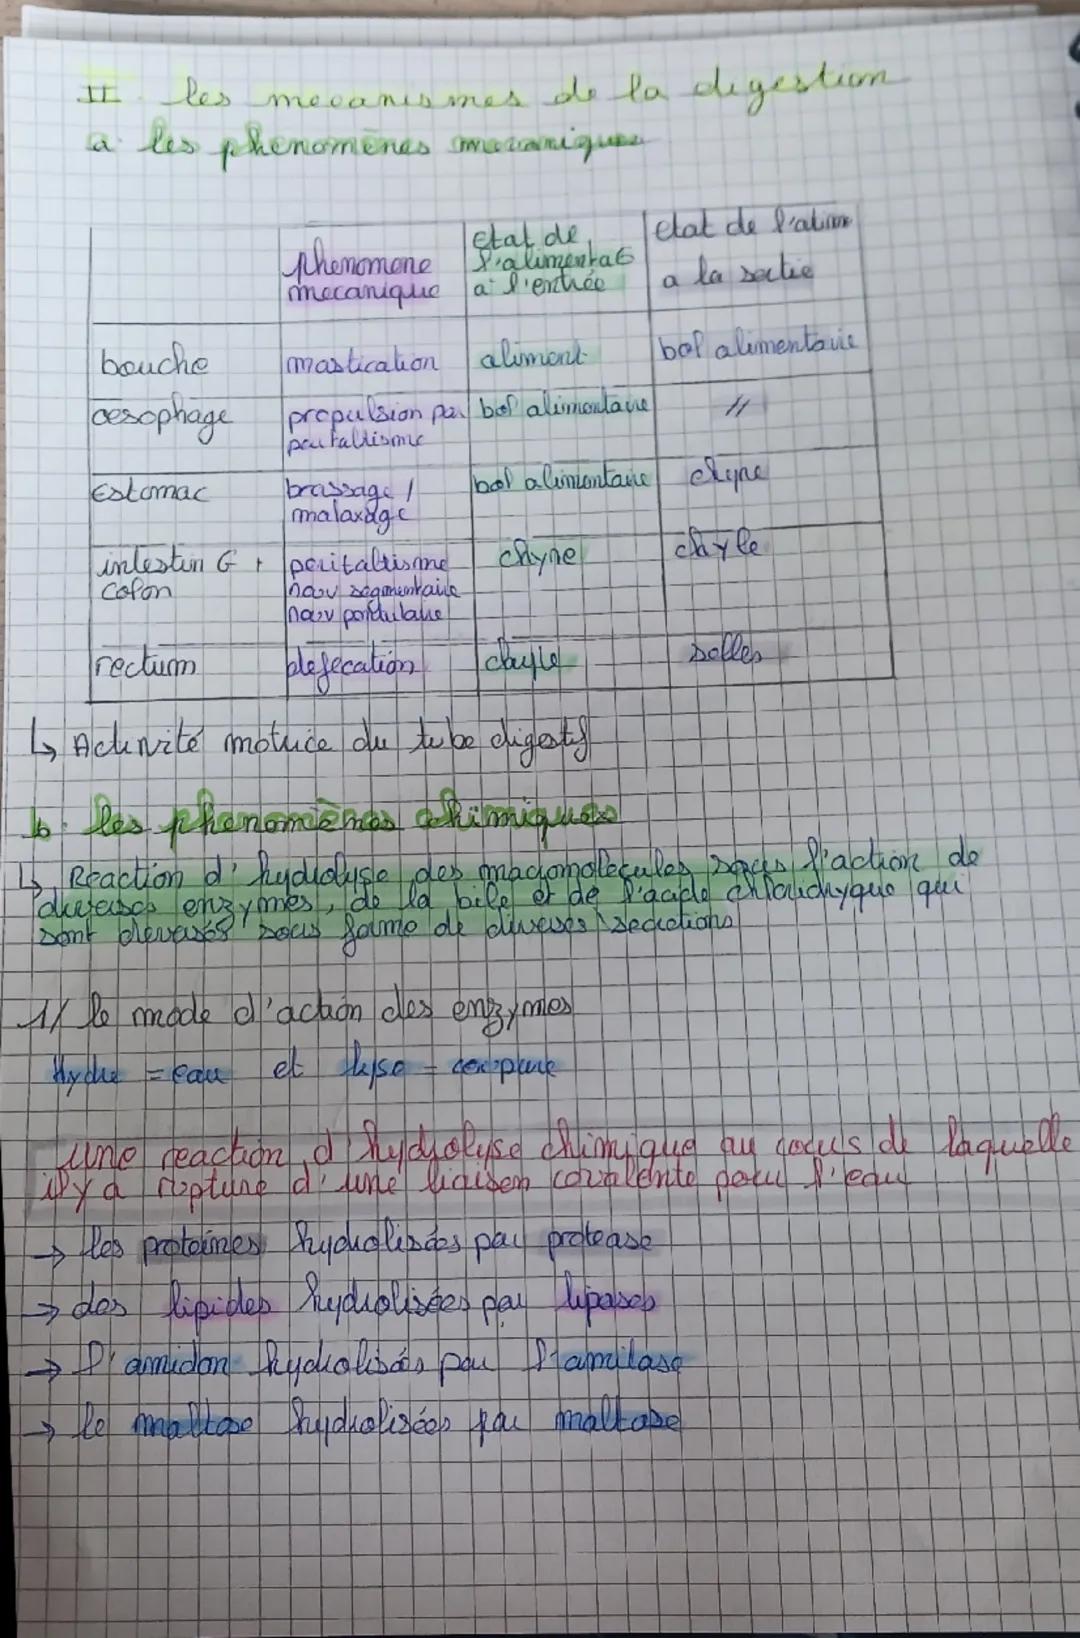 II. les mecanismes de la digestion
a. les phenomènes mecaniques
phenomene mecanique
Etat de l'alimentat à l'entrée
etat de l'alim a la sortie
bouche mastication aliment bol alimentaire
oesophage propulsion par peritaltisme bol alimentaire //
Estomac brassage / malaxage bol alimentaire chyme
intestin G + colon peritaltisme mouv segmentaire mouv pendulaire chyme chyle
rectum defecation chyle selles
↳ Activité motrice du tube digestif
b. les phenomènes chimiques
↳ Reaction d'hydrolyse des macromolecules sous l'action de
diverses enzymes, de la bile et de l'acide chlorhydryque qui
sont deversés sous forme de diverses secretions
1/ le mode d'action des enzymes
Hydro = eau et lyse = coupure
une reaction d'hydrolyse chimique au cours de laquelle
il y a rupture d'une liaison covalente pour l'eau
→ les proteines hydrolisées par protease
→ des lipides hydrolisées par lipases
→ l'amidon hydrolisés par l'amilase
→ le maltose hydrolisées par maltase